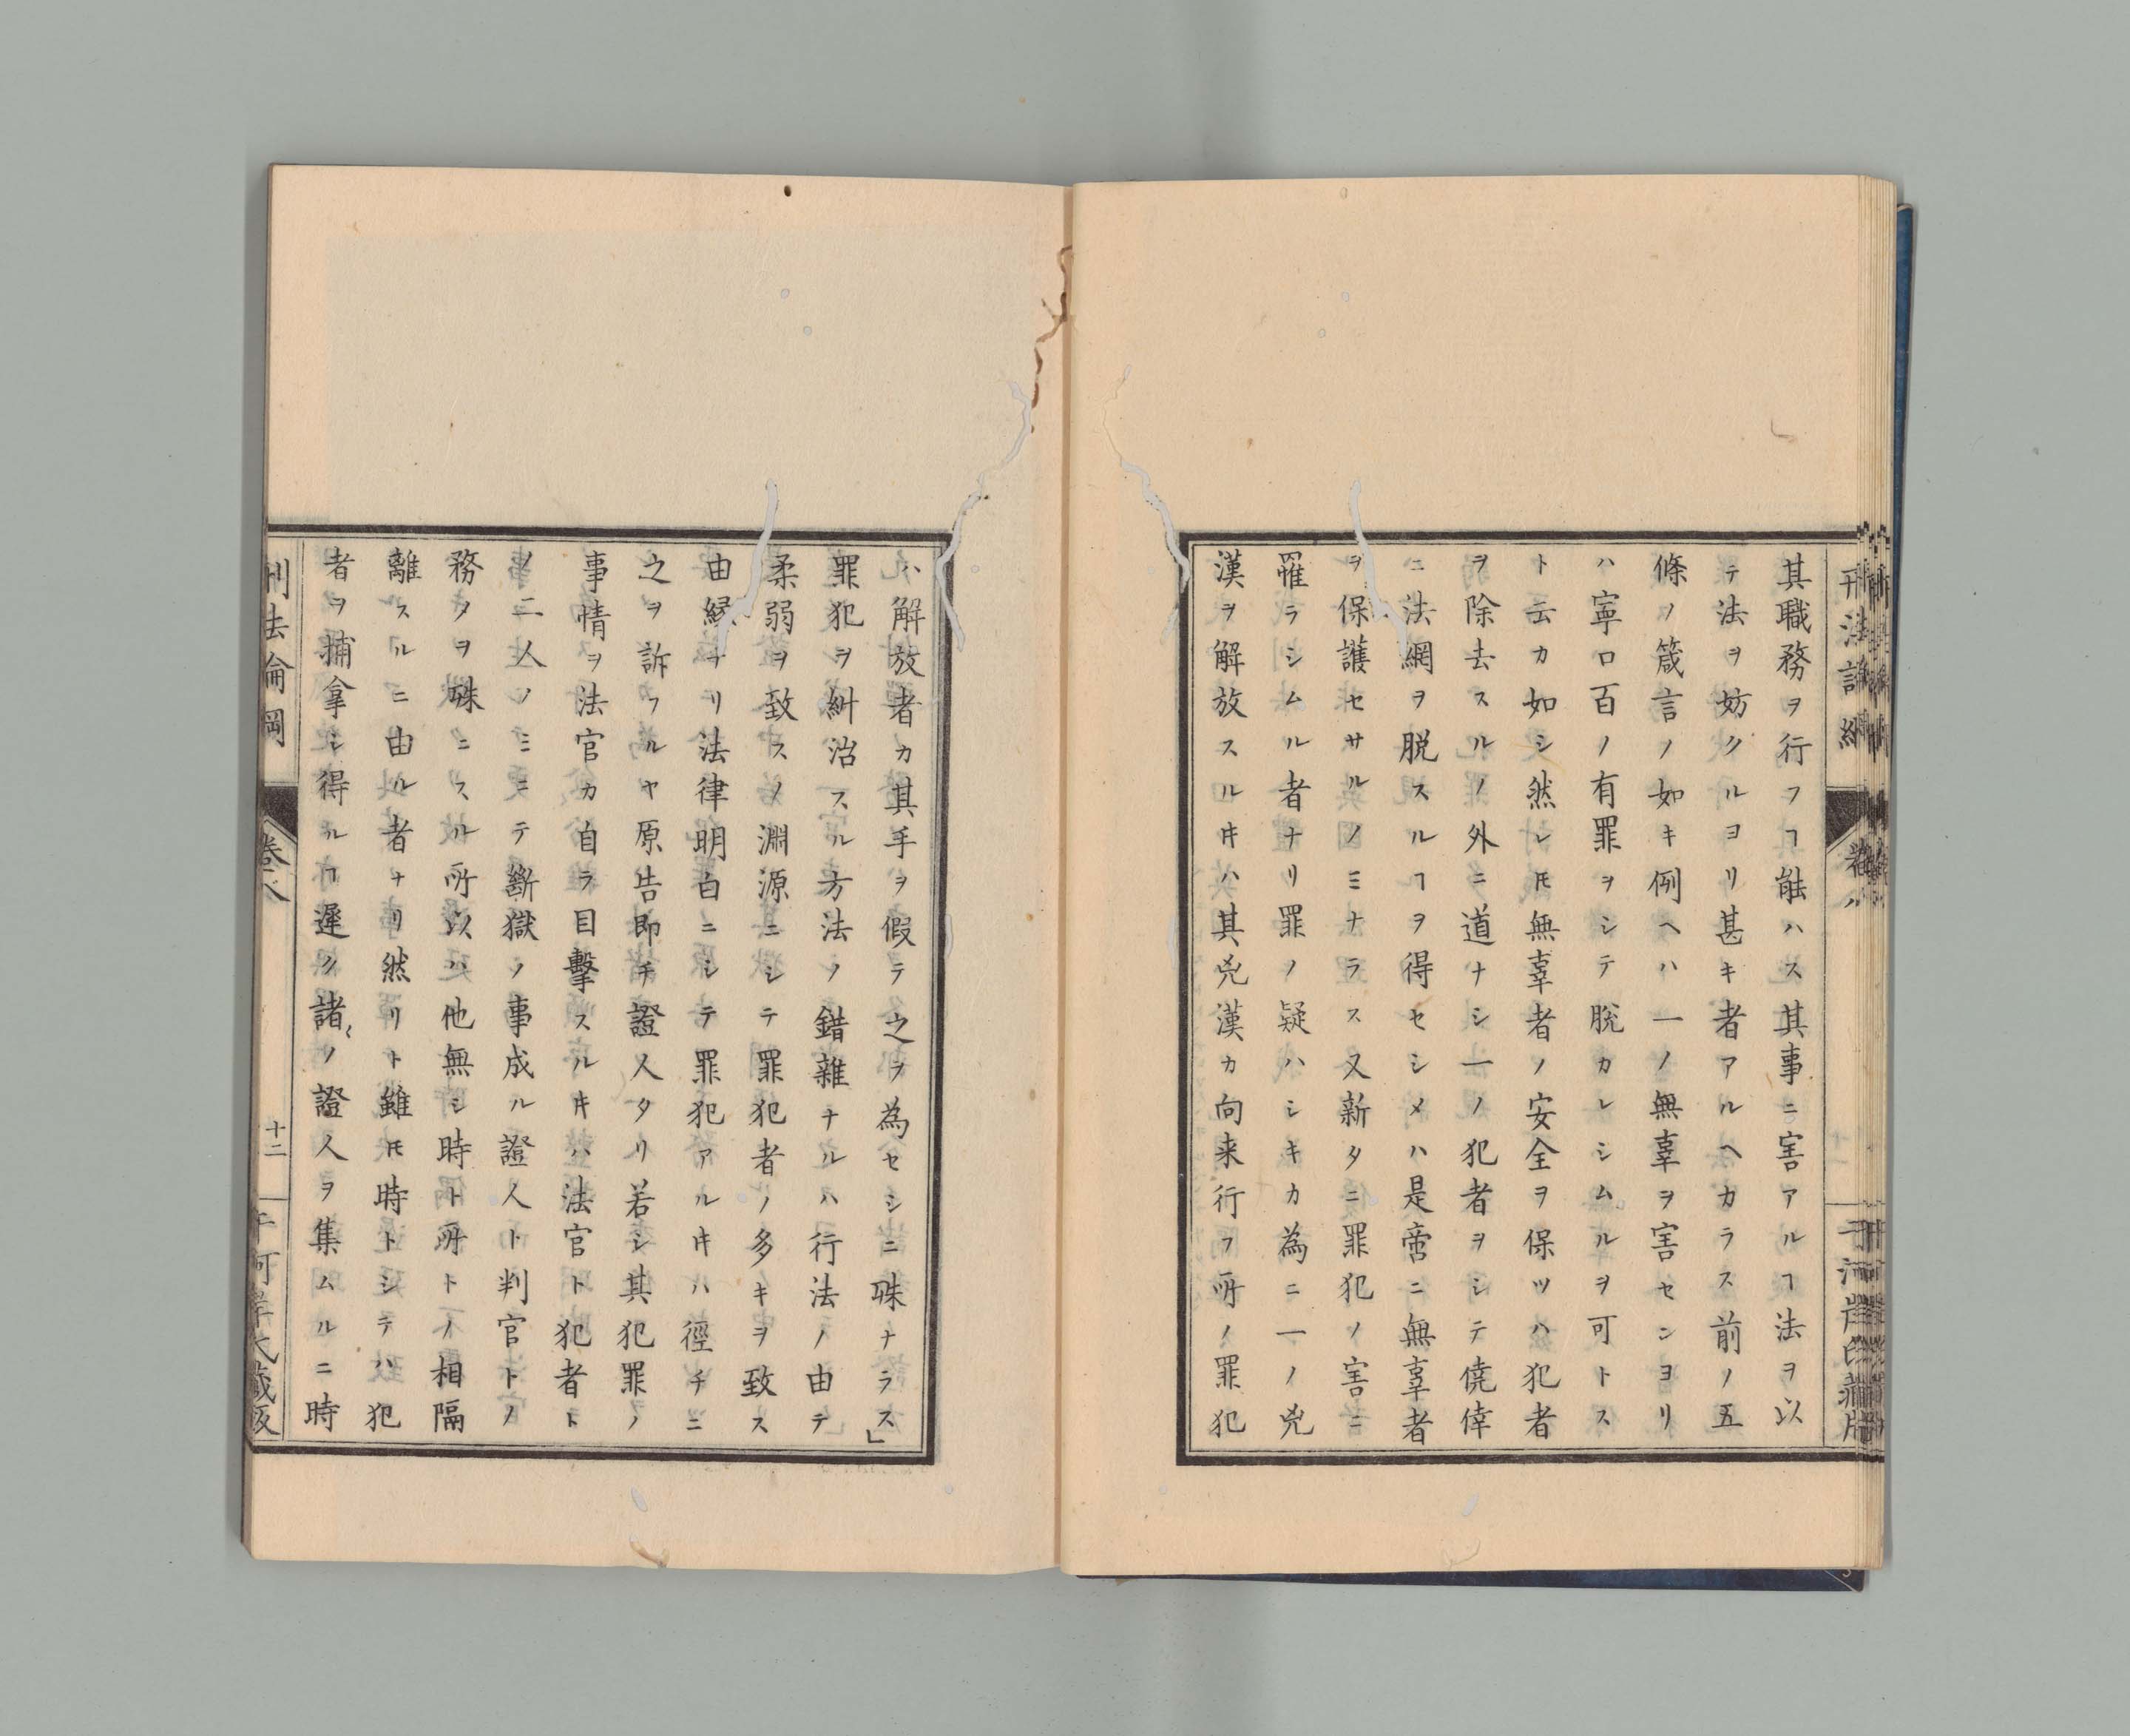 其職務ヲ行フヿ能ハス其事ニ害アルヿ法ヲ以
テ法ヲ妨クルヨリ甚キ者アルヘカラス前ノ五
條ノ箴言ノ如キ例ヘハ一ノ無辜ヲ害センヨリ
ハ寧ロ百ノ有罪ヲシテ脱カレシムルヲ可トス
ト云カ如シ然レ𪜈無辜者ノ安全ヲ保ツハ犯者
ヲ除去スルノ外ニ道ナシ一ノ犯者ヲシテ僥倖
ニ法網ヲ脱スルヿヲ得セシメハ是啻ニ無辜者
ヲ保護セサルノミナラス又新タニ罪犯ノ害ニ
罹ラシムル者ナリ罪ノ疑ハシキカ為ニ一ノ兇
漢ヲ解放スル𪜀ハ其兇漢カ向来行フ所ノ罪犯
ハ解放者カ其手ヲ假テ之ヲ為セシニ殊ナラス」
罪犯ヲ糾治スル方法ノ錯雜ナルハ行法ノ由テ
柔弱ヲ致スノ淵源ニシテ罪犯者ノ多キヲ致ス
由縁ナリ法律明白ニシテ罪犯アル𪜀ハ徑チニ
之ヲ訴フルヤ原告即チ證人タリ若シ其犯罪ノ
事情ヲ法官カ自ラ目擊スル𪜀ハ法官ト犯者ト
ノ二人ノミニテ斷獄ノ事成ル證人ト判官トノ
務タヲ殊ニスル所以ハ他無シ時ト所トノ相隔
離スルニ由ル者ナリ然リト雖𪜈時トシテハ犯
者ヲ捕拿シ得ルヿ遲ク諸〻ノ證人ヲ集ムルニ時
刑法論綱
卷八
十二
河岸氏藏版